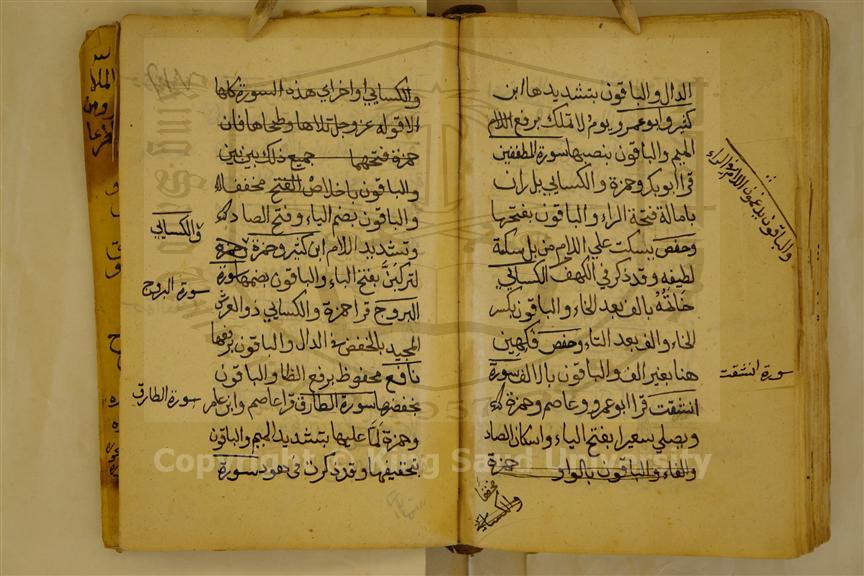 الدال والباقون بتشديدها ابن
كثير وابو عمرو يوم لا تملك برفع اللام
الميم والباقون بنصبها سورة المطففين
قرا ابو بكر وحمزة والكسايي بل ران
بامالة فتحة الراء والباقون بفتحها
وحفص يسكت علي اللام من بل سكتة
لطيفه وقد ذكر في الكهف الكسايي
خَاتَمُهُ بالف بعد الخاء والباقون بكسر
الخاء والف بعد التاء وحفص فكهين
هنا بغير الف والباقون بالالف سورة
انشقت قرا ابو عمرو وعاصم وحمزة
ويصلي سعيرا بفتح الياء واسكان الصاد
والفاء والباقون بالواو حمزة
مخففا
والكسايي
والباقون يدغمون اللام في الراء
سورة انشقت
والكسايي اواخر اي هذه السورة كلها
الا قوله عز وجل تلاها وطحاها فان
حمزة فتحهما جميع ذلك بين بين
والباقون باخلاص الفتح مخففا
والباقون بضم الياء وفتح الصاد
وتشديد اللام ابن كثير وحمزة
لتركبَنَّ بفتح الباء والباقون بضمها سورة
البروج قرا حمزة والكسايي ذو العرش
المجيد بالخفض في الدال والباقون برفعها
نافع محفوظ برفع الظا والباقون
بخفضها سورة الطارق قرا عاصم وابن عامر
وحمزة لمّا عليها بتشديد الميم والباقون
بتخفيفها وقد ذكرت في هود سورة
والكسايي
سورة البروج
سورة الطارق
Copyright © King Saud University
1957